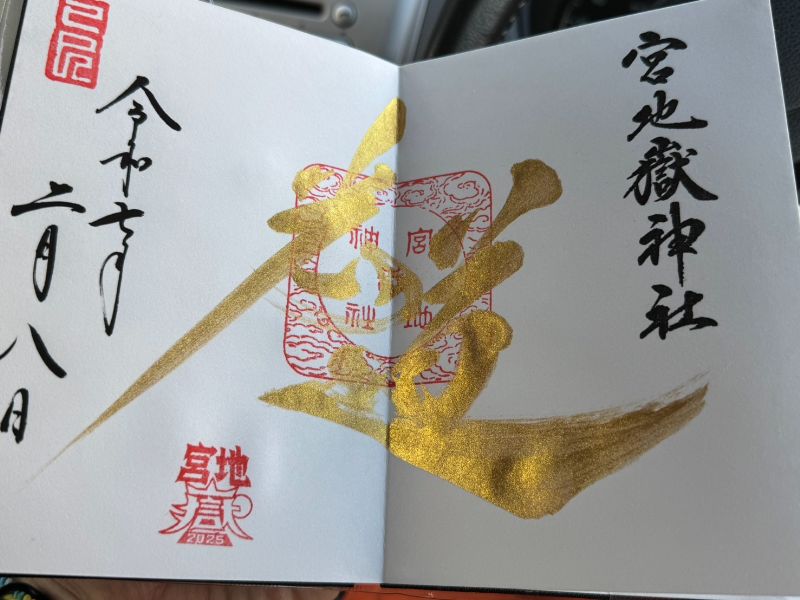 宮地嶽神社
宮地
神社
令和七年
二月八日
己巳
宮地
嶽
2025